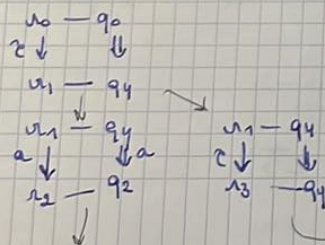 r₀ — q₀
τ ↓ ⇓
r₁ — q₄
r₁ — q₄
a ⇓ ⇓ a
r₂ — q₂
r₁ — q₄
τ ⇓ ⇓
r₃ — q₄